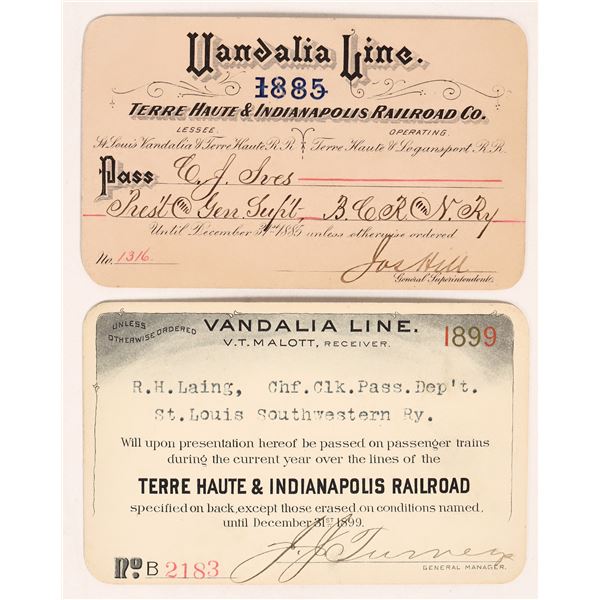 Vandalia Line.
1885
TERRE HAUTE & INDIANAPOLIS RAILROAD CO.
LESSEE. OPERATING.
St. Louis Vandalia & Terre Haute R.R. Terre Haute & Logansport R.R.
Pass C. J. Ives
Prest & Gen. Supt, B. C. R & N. Ry
Until December 31st 1885 unless otherwise ordered
No. 1316.
Jos Hill
General Superintendent.
UNLESS OTHERWISE ORDERED
VANDALIA LINE.
1899
V.T. MALOTT, RECEIVER.
R.H.Laing, Chf.Clk.Pass.Dep't.
St.Louis Southwestern Ry.
Will upon presentation hereof be passed on passenger trains
during the current year over the lines of the
TERRE HAUTE & INDIANAPOLIS RAILROAD
specified on back, except those erased, on conditions named,
until December 31ST 1899.
No B 2183
J. J. Turner
GENERAL MANAGER.